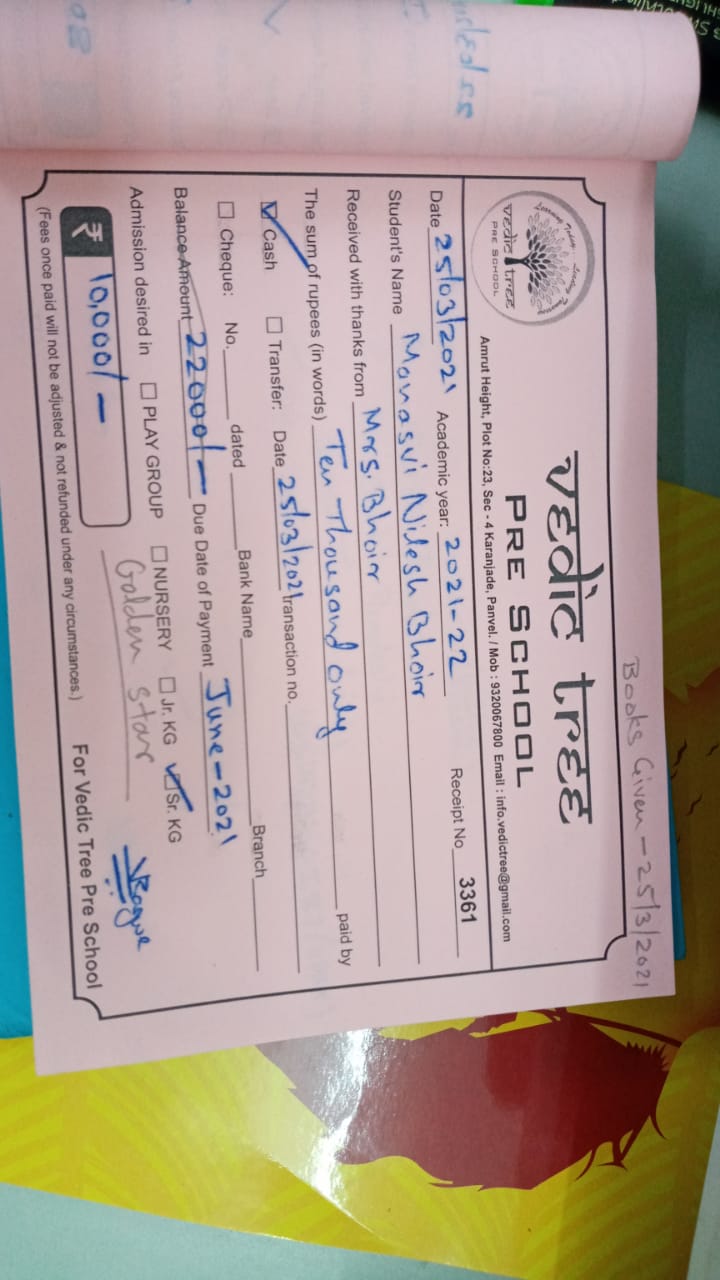 Books Given - 25/3/2021
Learning Today... Leading Tomorrow
vedic tree
PRE SCHOOL
vedic tree
PRE SCHOOL
Amrut Height, Plot No:23, Sec - 4 Karanjade, Panvel. / Mob : 9320067800 Email : info.vedictree@gmail.com
Date 25/03/2021 Academic year: 2021-22 Receipt No 3361
Student's Name Manasvi Nilesh Bhoir
Received with thanks from Mrs. Bhoir
The sum of rupees (in words) Ten Thousand only paid by
Cash Transfer: Date 25/03/2021 transaction no.
Cheque: No. dated Bank Name Branch
Balance Amount 22000/- Due Date of Payment June-2021
Admission desired in PLAY GROUP NURSERY Jr. KG Sr. KG
Golden star
₹ 10,000/-
For Vedic Tree Pre School
(Fees once paid will not be adjusted & not refunded under any circumstances.)